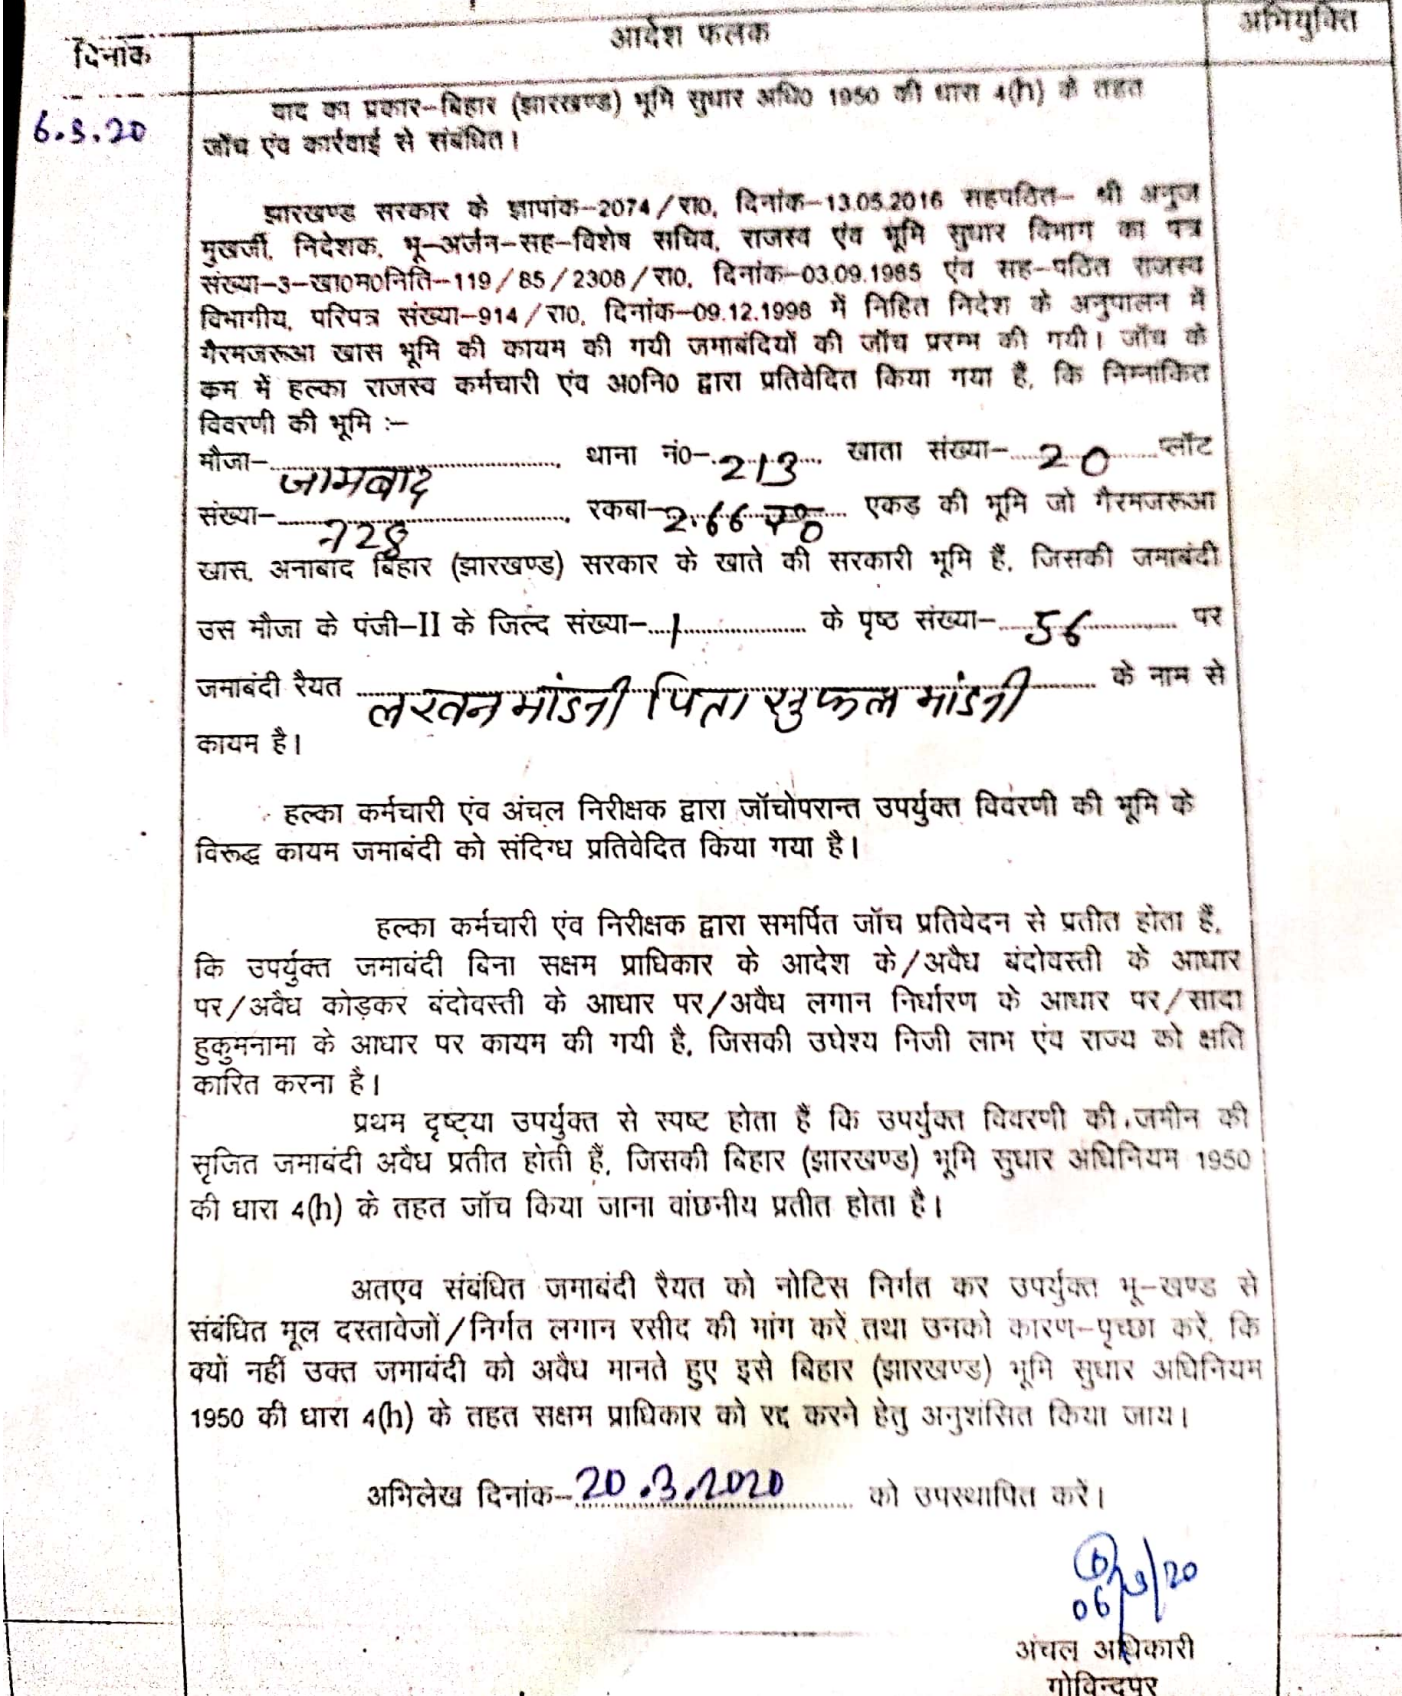 दिनांक
आदेश फलक
अभियुक्ति
6.3.20
वाद का प्रकार–बिहार (झारखण्ड) भूमि सुधार अधि0 1950 की धारा 4(h) के तहत
जॉच एंव कार्रवाई से संबंधित।
झारखण्ड सरकार के ज्ञापांक–2074/रा0, दिनांक–13.05.2016 सहपठित– श्री अनुज
मुखर्जी, निदेशक, भू–अर्जन–सह–विशेष सचिव, राजस्व एंव भूमि सुधार विभाग का पत्र
संख्या–3–खा0म0निति–119/85/2308/रा0, दिनांक–03.09.1985 एंव सह–पठित राजस्व
विभागीय, परिपत्र संख्या–914/रा0, दिनांक–09.12.1998 में निहित निदेश के अनुपालन में
गैरमजरूआ खास भूमि की कायम की गयी जमाबंदियों की जॉच प्ररम्भ की गयी। जॉच के
कम में हल्का राजस्व कर्मचारी एंव अ0नि0 द्वारा प्रतिवेदित किया गया हैं, कि निम्नांकित
विवरणी की भूमि :–
मौजा– जामबाद, थाना नं0– 213, खाता संख्या– 20 प्लॉट
संख्या– 728, रकबा– 2.66 एकड़ की भूमि जो गैरमजरूआ
खास, अनाबाद बिहार (झारखण्ड) सरकार के खाते की सरकारी भूमि हैं, जिसकी जमाबंदी
उस मौजा के पंजी–II के जिल्द संख्या– 1 के पृष्ठ संख्या– 56 पर
जमाबंदी रैयत लखन मांडत्री पिता सुफल मांडत्री के नाम से
कायम है।
हल्का कर्मचारी एंव अंचल निरीक्षक द्वारा जॉचोपरान्त उपर्युक्त विवरणी की भूमि के
विरूद्ध कायम जमाबंदी को संदिग्ध प्रतिवेदित किया गया है।
हल्का कर्मचारी एंव निरीक्षक द्वारा समर्पित जॉच प्रतिवेदन से प्रतीत होता हैं,
कि उपर्युक्त जमाबंदी बिना सक्षम प्राधिकार के आदेश के/अवैध बंदोवस्ती के आधार
पर/अवैध कोड़कर बंदोवस्ती के आधार पर/अवैध लगान निर्धारण के आधार पर/सादा
हुकुमनामा के आधार पर कायम की गयी है, जिसकी उघेश्य निजी लाभ एंव राज्य को क्षति
कारित करना है।
प्रथम दृष्ट्या उपर्युक्त से स्पष्ट होता हैं कि उपर्युक्त विवरणी की जमीन की
सृजित जमाबंदी अवैध प्रतीत होती हैं, जिसकी बिहार (झारखण्ड) भूमि सुधार अधिनियम 1950
की धारा 4(h) के तहत जॉच किया जाना वांछनीय प्रतीत होता है।
अतएव संबंधित जमाबंदी रैयत को नोटिस निर्गत कर उपर्युक्त भू–खण्ड से
संबंधित मूल दस्तावेजों/निर्गत लगान रसीद की मांग करें तथा उनको कारण–पृच्छा करें, कि
क्यों नहीं उक्त जमाबंदी को अवैध मानते हुए इसे बिहार (झारखण्ड) भूमि सुधार अधिनियम
1950 की धारा 4(h) के तहत सक्षम प्राधिकार को रद्द करने हेतु अनुशंसित किया जाय।
अभिलेख दिनांक– 20.3.2020 को उपस्थापित करें।
06/3/20
अंचल अधिकारी
गोविन्दपुर